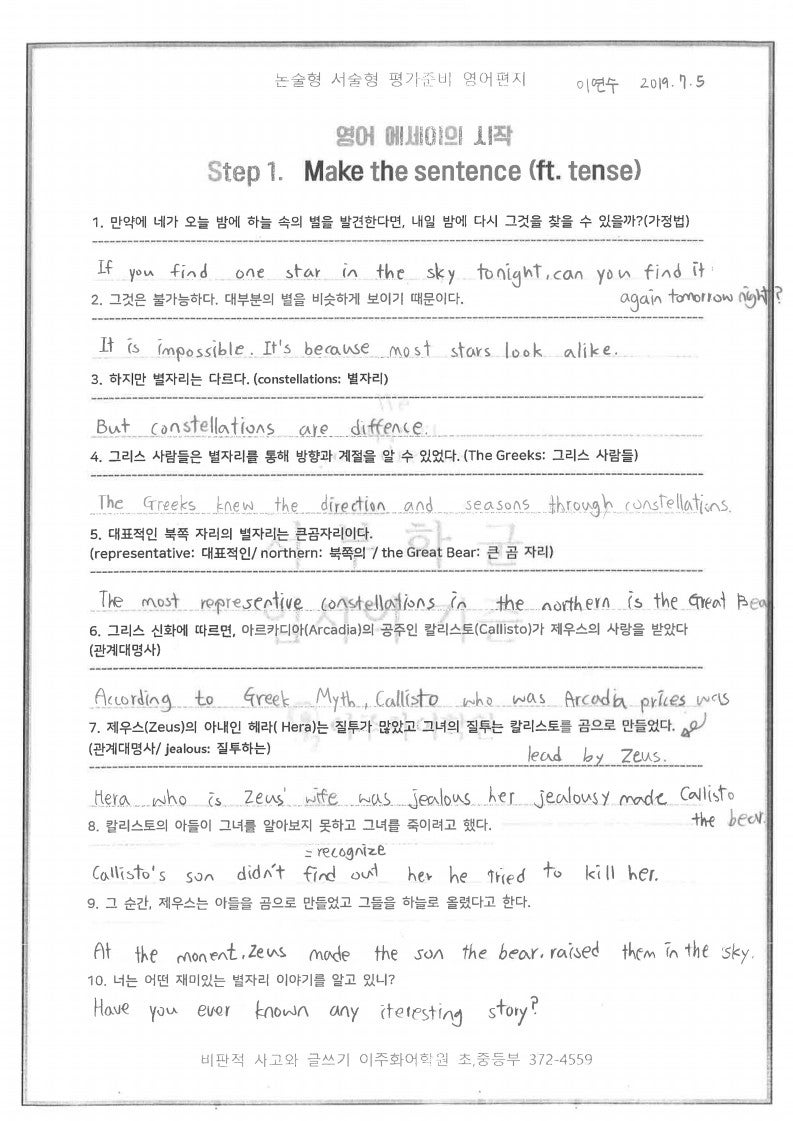 논술형 서술형 평가준비 영어편지 이연수 2019.7.5
영어 에세이의 시작
Step 1. Make the sentence (ft. tense)
1. 만약에 네가 오늘 밤에 하늘 속의 별을 발견한다면, 내일 밤에 다시 그것을 찾을 수 있을까?(가정법)
If you find one star in the sky tonight, can you find it
again tomorrow night?
2. 그것은 불가능하다. 대부분의 별을 비슷하게 보이기 때문이다.
It is impossible. It's because most stars look alike.
3. 하지만 별자리는 다르다. (constellations: 별자리)
But constellations are diffence.
4. 그리스 사람들은 별자리를 통해 방향과 계절을 알 수 있었다. (The Greeks: 그리스 사람들)
The Greeks knew the direction and seasons through constellations.
5. 대표적인 북쪽 자리의 별자리는 큰곰자리이다.
(representative: 대표적인/ northern: 북쪽의 / the Great Bear: 큰 곰 자리)
The most representive constellations in the northern is the Great Bea
6. 그리스 신화에 따르면, 아르카디아(Arcadia)의 공주인 칼리스토(Callisto)가 제우스의 사랑을 받았다
(관계대명사)
According to Greek Myth, Callisto who was Arcadia prices was
lead by Zeus.
7. 제우스(Zeus)의 아내인 헤라( Hera)는 질투가 많았고 그녀의 질투는 칼리스토를 곰으로 만들었다.
(관계대명사/ jealous: 질투하는)
Hera who is Zeus' wife was jealous her jealousy made Callisto
the bear.
8. 칼리스토의 아들이 그녀를 알아보지 못하고 그녀를 죽이려고 했다.
= recognize
Callisto's son didn't find out her he tried to kill her.
9. 그 순간, 제우스는 아들을 곰으로 만들었고 그들을 하늘로 올렸다고 한다.
At the monent, Zeus made the son the bear, raised them in the sky.
10. 너는 어떤 재미있는 별자리 이야기를 알고 있니?
Have you ever known any iteresting story?
비판적 사고와 글쓰기 이주화어학원 초,중등부 372-4559